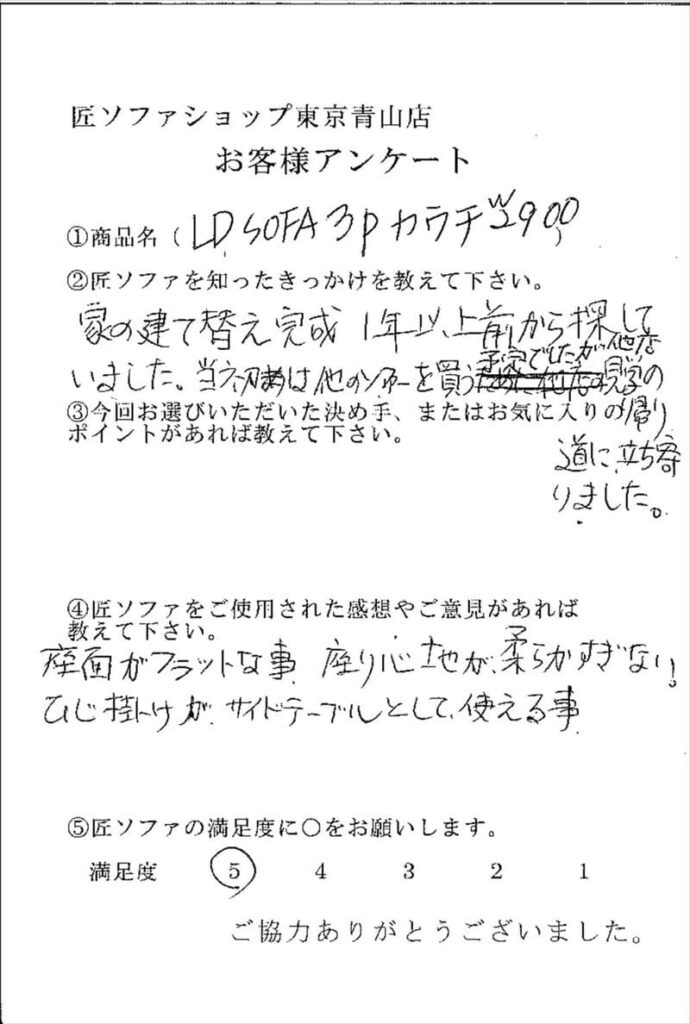 匠ソファショップ東京青山店
お客様アンケート
①商品名 ( LD SOFA 3P カウチ W2900 )
②匠ソファを知ったきっかけを教えて下さい。
家の建て替え完成 1年以上前から探して
いました。当初は他のソファーを買う予定でしたが他店見学の
帰り
道に立ち寄
りました。
③今回お選びいただいた決め手、またはお気に入りの
ポイントがあれば教えて下さい。
④匠ソファをご使用された感想やご意見があれば
教えて下さい。
座面がフラットな事 座り心地が、柔らかすぎない!
ひじ掛けが、サイドテーブルとして、使える事
⑤匠ソファの満足度に○をお願いします。
満足度 5 4 3 2 1
ご協力ありがとうございました。